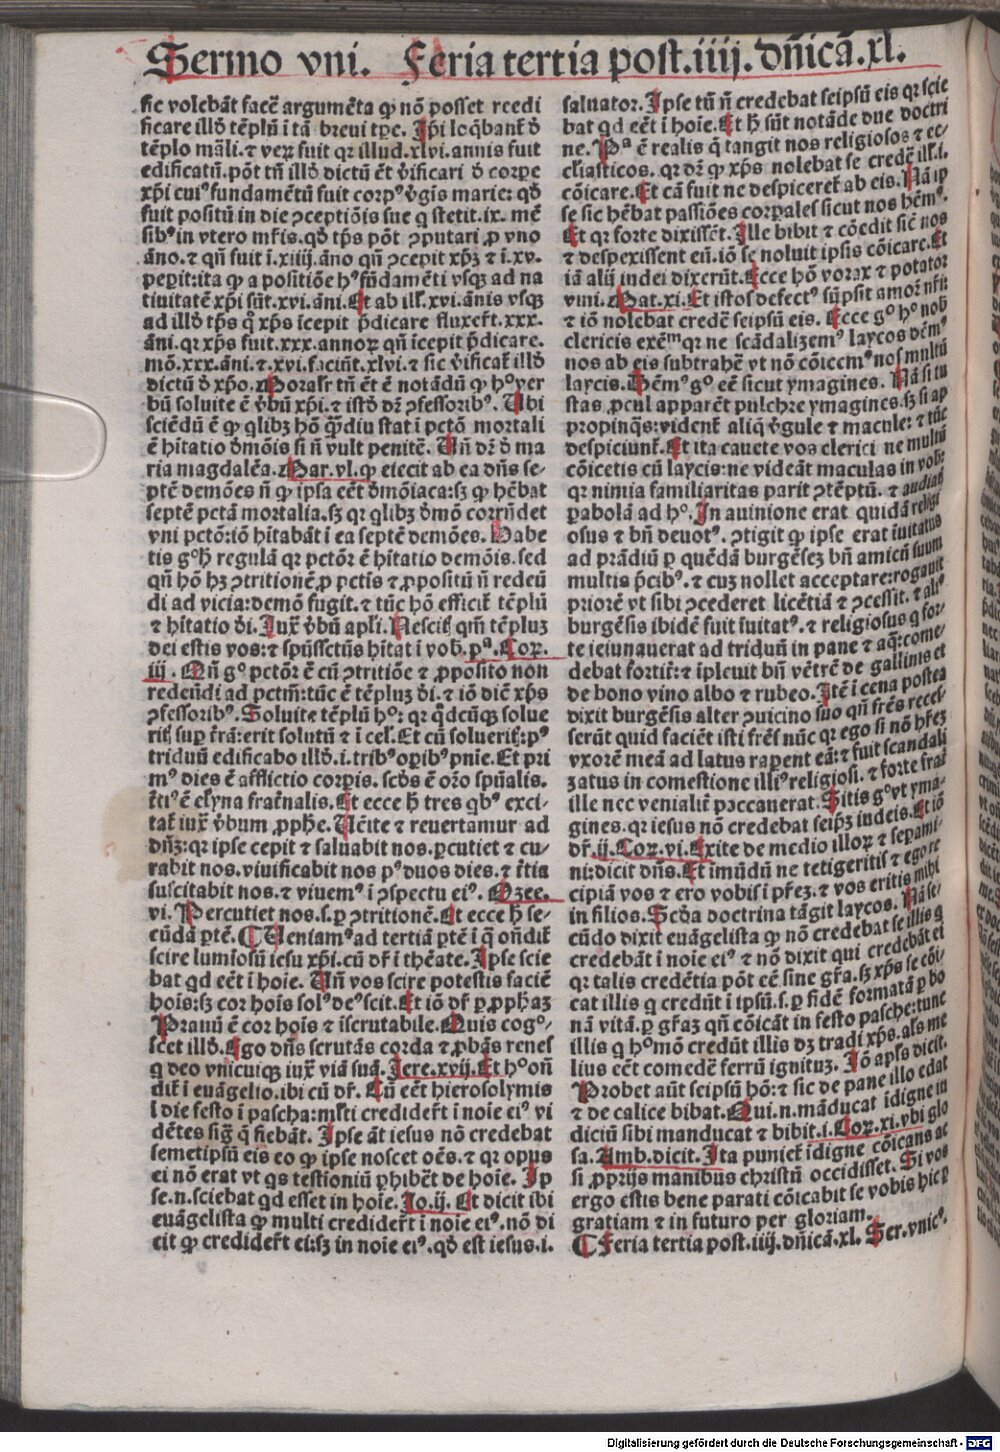 Sermo vni. Feria tertia post.iiij. dn̄icā.xl.
sic volebāt facē argumēta ꝙ nō posset reedi
ficare illd̄ tēplū i tā breui tꝑe. Ipi loq̄bant̉ ď
tēplo māli. ⁊ veꝝ fuit qꝛ illud.xlvi.annis fuit
edificatū.pōt tn̄ illd̄ dictū ēt v̓ificari ď corpe
xp̄i cuiꝰ fundamētū fuit corpꝰ v̓gis marie: qd̓
fuit positū in die ꝯceptiōis sue q stetit.ix. mē
sibꝰ in vtero mr̄is.qd̓ tp̄s pōt ꝯputari ꝓ vno
āno. ⁊ qn̄ fuit i.xiiij.āno qn̄ ꝯcepit xp̄ꝫ ⁊ i.xv.
peꝑit:ita ꝙ a positiōe hꝰ fūdamēti vsqꝫ ad na
tiuitatē xp̄i sūt.xvi.āni. Et ab ill̓.xvi.ānis vsqꝫ
ad illd̓ tp̄s q̊ xp̄s īcepit p̄dicare fluxer̄t.xxx.
āni.qꝛ xp̄s fuit.xxx.annoꝝ qn̄ icepit p̄dicare.
mō.xxx.āni.⁊.xvi.faciūt.xlvi.⁊ sic v̓ificat̉ illd̓
dictū ď xp̄o. Moralr̄ tn̄ ēt ē notādū ꝙ hoꝰ ver
bū soluite ē v̓bū xp̄i.⁊ istd̓ dꝛ̄ ꝯfessoribꝰ. Vbi
sciēdū ē ꝙ qlibꝫ hō q̄diu stat i pctō mortali
ē hitatio ďmōis si n̄ vult penitē. Vn̄ dꝛ̄ ď ma
ria magdalēa. Mar.vl.ꝙ eiecit ab ea dn̄s se-
ptē demōes n̄ ꝙ ipsa eēt ďmōiaca:sꝫ ꝙ hēbat
septē pctā mortalia.sꝫ qꝛ qlibꝫ ďmō corrn̄det
vni pctō:iō hitabāt i ea septē demōes. Habe
tis g°ħ regulā qꝛ pctōꝛ ē hitatio demōis.sed
qn̄ hō hꝫ ꝯtritionē ꝓ pctīs ⁊ ꝓpositū n̄ redeū
di ad vicia:demō fugit.⁊ tūc hō efficit̉ tēplū
⁊ hitatio ďi. Iux̄ v̓bū apl̓i. Nescitꝭ qm̄ tēpluꝫ
dei estis vos:⁊ spūssctūs hitat i vob̓.pª.Coꝝ.
iij. Qn̄ g° pctōꝛ ē cū ꝯtritiōe ⁊ ꝓposito non
redeūdi ad pctm̄:tūc ē tēpluꝫ ďi.⁊ iō diē xp̄s
ꝯfessoribꝰ. Soluite tēplū h°: qꝛ q̄dcūqꝫ solue
ritꝭ suꝑ tr̄ā:erit solutū ⁊ i cel̓. Et cū solueritꝭ:pꝰ
triduū edificabo illd̓.i.tribꝰ oꝑibꝰ pn̄ie. Et pri
mꝰ dies ē afflictio corꝑis. scd̓s ē or̄o spūalis.
t̓tiꝰ ē elyna frat̓nalis. Et ecce ħ tres qbꝰ exci-
tat̉ iux̄ v̓bum ꝓpħe. Uēite ⁊ reuertamur ad
dn̄ꝫ:qꝛ ipse cepit ⁊ saluabit nos.ꝑcutiet ⁊ cu-
rabit nos.viuificabit nos pꝰ duos dies.⁊ t̓tia
suscitabit nos.⁊ viuemꝰ i ꝯspectu eiꝰ. Ozee.
vi. Percutiet nos.s.ꝑ ꝯtritionē. Et ecce ħ se-
cūda ꝑtē. ¶ Ueniamꝰ ad tertiā ꝑtē i q̄ on̄dit̉
scire lumiosū iesu xp̄i.cū dr̄ i thēate. Ipse scie
bat qd eēt i hoie. Vn̄ vos scire potestis faciē
hois:sꝫ cor hois solꝰ deꝰ scit. Et iō dr̄ ꝑ ꝓpħaꝫ
Prauū ē cor hois ⁊ iscrutabile. Quis cog°-
scet illd̓. Ego dn̄s scrutās corda ⁊ ꝓbās renes
q deo vnicuiqꝫ iux̄ viā suā. Iere.xvij. Et h°on̄
dit̉ i euāgelio.ibi cū dr̄. Cū eēt hierosolymis
i die festo i pascha:ml̓ti credider̄t i noie eiꝰ vi
dētes sig̓ q̄ fiebāt. Ipse āt iesus nō credebat
semetipsū eis eo ꝙ ipse noscet oēs.⁊ qꝛ opus
ei nō erat vt qs testioniū ꝑhibēt de hoie. Ip
se.n.sciebat qd esset in hoie. Io.ij. Et dicit ibi
euāgelista ꝙ multi credider̄t i noie eiꝰ.nō di
cit ꝙ credider̄t ei:sꝫ in noie eiꝰ.qd̓ est iesus.i.
saluator. Ipse tn̄ n̄ credebat seipsū eis qꝛ scie
bat qd eēt i hoie. Et ħ sūt notāde due doctri
ne. Pª ē realis q̄ tangit nos religiosos ⁊ ec-
cl̓iasticos. qꝛ dꝛ̄ ꝙ xp̄s nolebat se credē ill̓.i.
cōicare. Et cā fuit ne despiceret̉ ab eis. Nā ip
se sic hēbat passiōes corꝑales sicut nos hēmꝰ.
Et qꝛ forte dixissēt. Ille bibit ⁊ cōedit sic̄ nos
⁊ despexissent eū.iō se noluit ipsis cōicare. Et
iā alij iudei dixerūt. Ecce hō vorax ⁊ potator
vini. Mat.xi. Et istos defectꝰ sūpsit amoꝛ nr̄i:
⁊ iō nolebat credē seipsū eis. Ecce g° h° nob̓
clericis exēmqꝛ ne scādalizemꝰ laycos ďēmꝰ
nos ab eis subtrahē vt nō cōicemꝰ nos multū
laycis. Hēmꝰ g° eē sicut ymagines. Nā si tu
stas ꝓcul apparēt pulchre ymagines.sꝫ si ap
propinq̄s:vident̉ aliq̄ v̓gule ⁊ macule:⁊ tūc
despiciunt̉. Et ita cauete vos clerici ne multū
cōicetis cū laycis:ne videāt maculas in vobꝭ
qꝛ nimia familiaritas parit ꝯtēptū. ⁊ audiatꝭ
ꝑabolā ad h°. In auinione erat quidā religi
osus ⁊ bn̄ deuotꝰ. ꝯtigit ꝙ ipse erat iuitatus
ad prādiū ꝑ quēdā burgēsez bn̄ amicū suum
multis p̄cibꝰ.⁊ cuz nollet acceptare:rogauit
priorē vt sibi ꝯcederet licētiā ⁊ ꝯcessit.⁊ aliꝰ
burgēsis ibidē fuit iuitatꝰ.⁊ religiosus q for
te ieiunauerat ad triduū in pane ⁊ aq̄:come-
debat fortit̓:⁊ ipleuit bn̄ vētrē de gallinis et
de bono vino albo ⁊ rubeo. Itē i cena postea
dixit burgēsis alter ꝯuicino suo qn̄ fr̄es reces
serūt quid faciēt isti fres̄ nūc qꝛ ego si nō hr̄eꝫ
vxorē meā ad latus raꝑent eā:⁊ fuit scandali
zatus in comestione illiꝰ religiosi.⁊ forte frat̓
ille nec venialit̓ peccauerat. Sitis g° vt yma-
gines. qꝛ iesus nō credebat seipꝫ iudeis. Et iō
dr̄.ij.Coꝝ.vi. Exite de medio illoꝝ ⁊ seꝑami-
ni:dicit dn̄s. Et imūdū ne tetigeritis ⁊ ego re
cipiā vos ⁊ ero vobis i pr̄eꝫ.⁊ vos eritis mihi
in filios. Scd̓a doctrina tāgit laycos. Nā se-
cūdo dixit euāgelista ꝙ nō credebat se illis q
credebāt i noie eiꝰ ⁊ nō dixit qui credebāt ei
qꝛ talis credētia pōt eē sine gr̄a.sꝫ xp̄s se cōi-
cat illis q credūt i ipsū.s.ꝑ fidē formatā ꝑ bo
nā vitā.ꝑ gr̄aꝫ qn̄ cōicāt in festo pasche:tunc
illis q h°mō credūt illis dꝫ tradi xp̄s.als me
lius eēt comedē ferrū ignituꝫ. Iō apl̓s dicit.
Probet aūt seipsū hō:⁊ sic de pane illo edat
⁊ de calice bibat. Qui.n.māducat idigne iu
diciū sibi manducat ⁊ bibit.i.Coꝝ.xi.vbi glo
sa. Amb.dicit. Ita puniet̉ idigne cōicans ac
si ꝓprijs manibus christū occidisset. Si vos
ergo estis bene parati cōicabit se vobis hic ꝑ
gratiam ⁊ in futuro per gloriam.
¶ Feria tertia post.iiij.dn̄icā.xl. Ser.vnicꝰ.
Digitalisierung gefördert durch die Deutsche Forschungsgemeinschaft - DFG